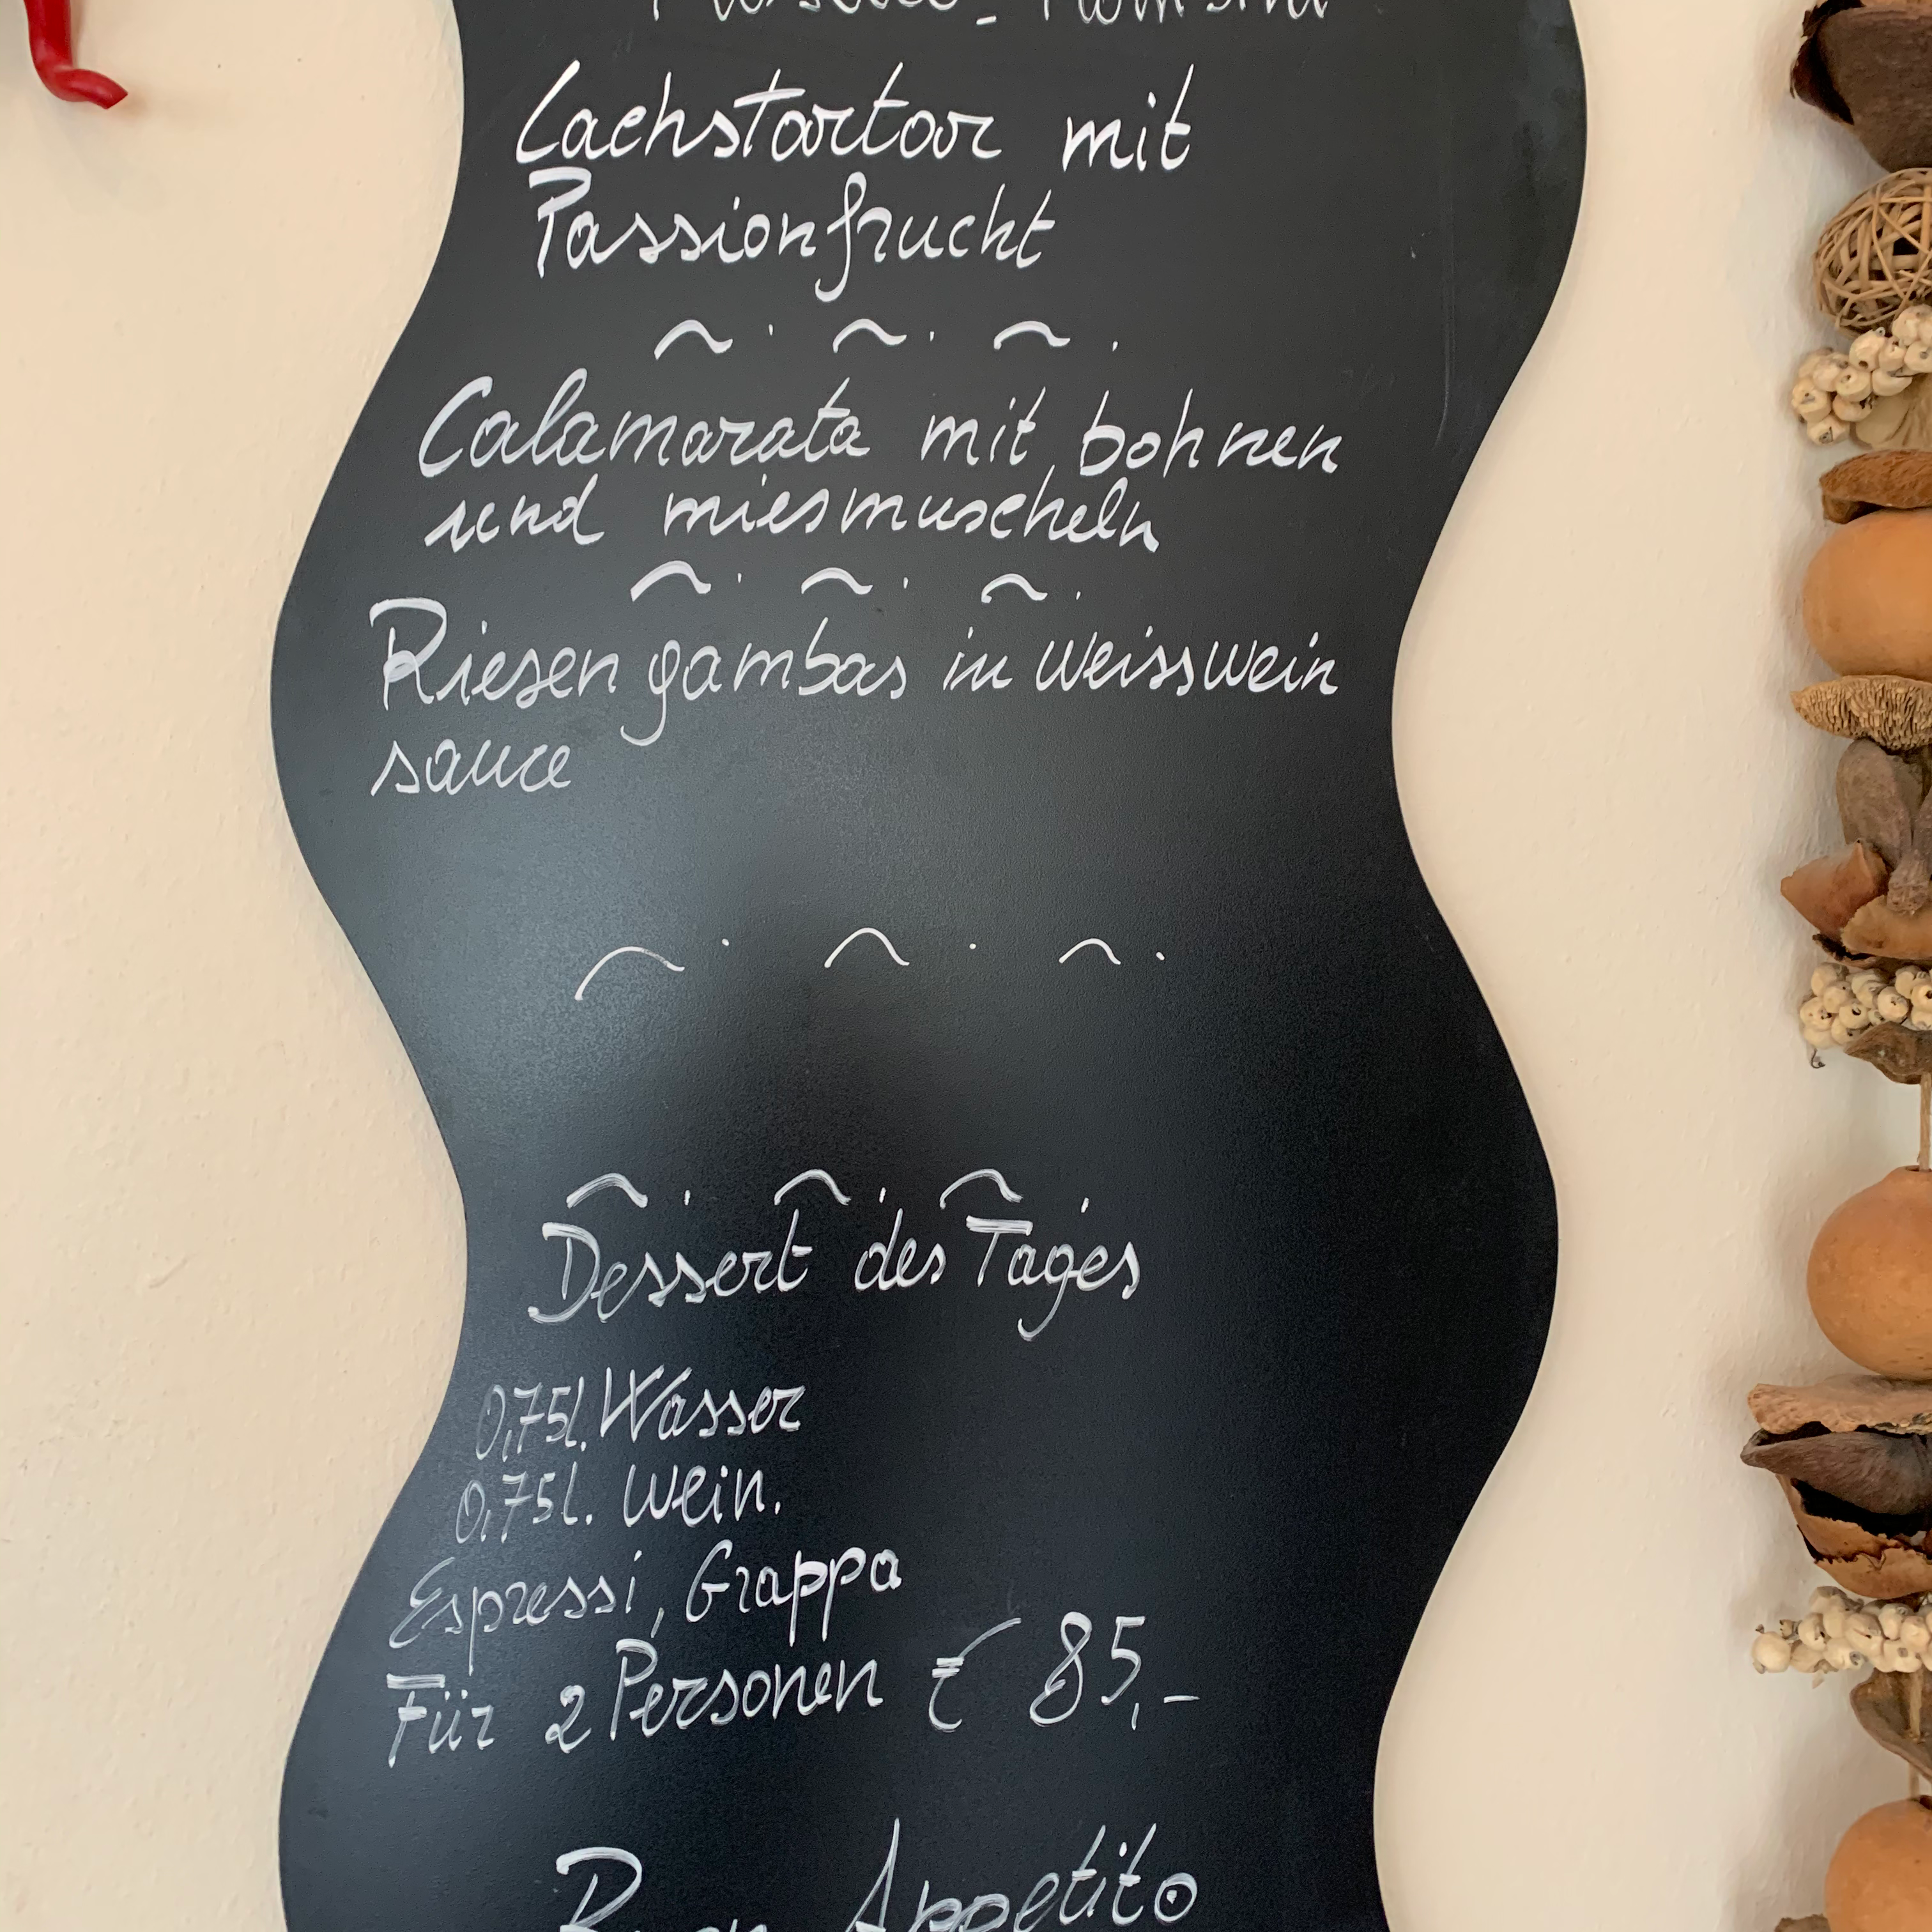 Lachstartar mit
Passionfrucht
Calamarata mit bohnen
und miesmuscheln
Riesengambas in weisswein
sauce
Dessert des Tages
0,75l. Wasser
0,75l. Wein.
Espressi, Grappa
Für 2 Personen € 85,-
Buon Appetito